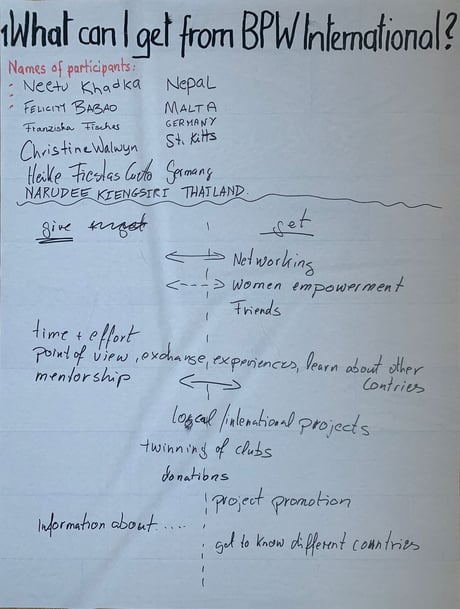 1 What can I get from BPW International?
Names of participants:
Neetu Khadka Nepal
FELICITY BABAO MALTA
Franziska Fischer GERMANY
Christine Walwyn St. Kitts
Heike Germany
NARUDEE KIENGSIRI THAILAND.
give get
Networking
Women empowerment
Friends
time + effort
point of view, exchange, experiences, learn about other
mentorship Contries
local / intenational projects
twinning of clubs
donations
project promotion
Information about....
get to know different countries